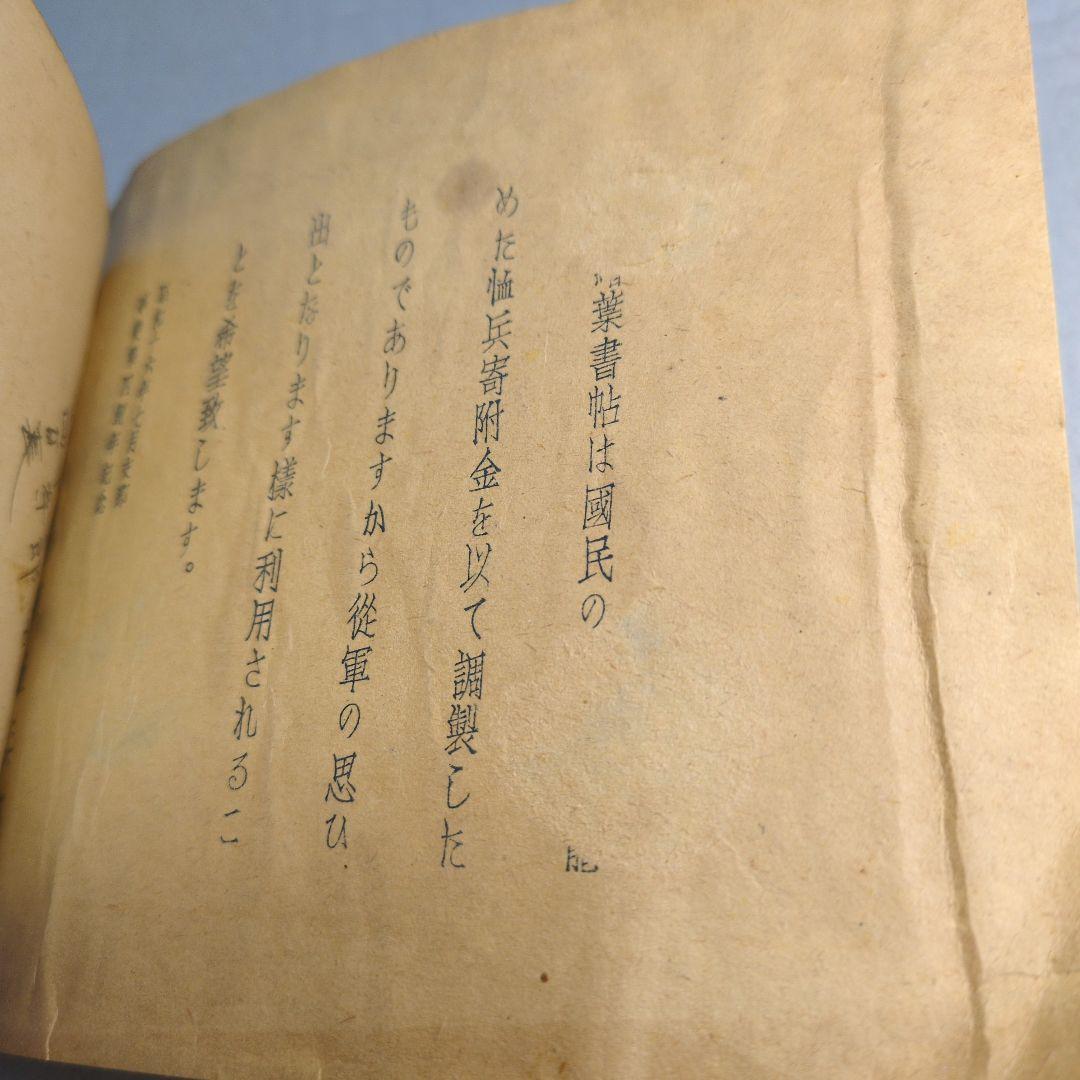 葉書帖は國民の
めた恤兵寄附金を以て調製した
ものでありますから從軍の思ひ
出となります様に利用されるこ
とを希望致します。